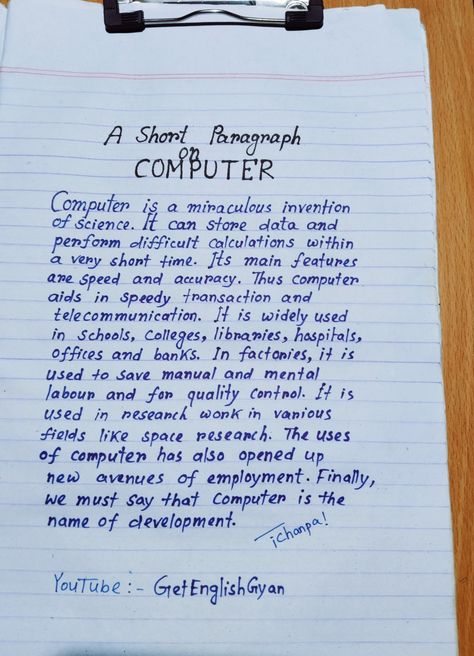 A Short Paragraph
on
COMPUTER
Computer is a miraculous invention
of science. It can store data and
perform difficult calculations within
a very short time. Its main features
are speed and accuracy. Thus computer
aids in speedy transaction and
telecommunication. It is widely used
in schools, colleges, libraries, hospitals,
offices and banks. In factories, it is
used to save manual and mental
labour and for quality control. It is
used in research work in various
fields like space research. The uses
of computer has also opened up
new avenues of employment. Finally,
we must say that computer is the
name of development.
YouTube:- GetEnglishGyan